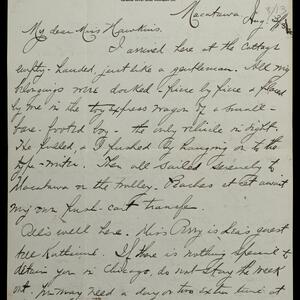 Macatawa, Aug
My dear Miss Hawkins.
I arrived here at the Cottage
empty-handed, just like a gentleman. All my
belongings were docked piece by piece & placed
by me in the toy express wagon of a small
bare-footed boy - the only vehicle in sight.
He pulled, & I pushed by hanging on to the
type-writer. Then all sailed serenely to
Macatawa on the trolley. Peaches at await
my own push-cart transfer.
All is well here. Miss Perry is Lea's guest
Katherine. If there is nothing special to
detain you in Chicago, do not stay the week
out. You may need a day or two extra time at